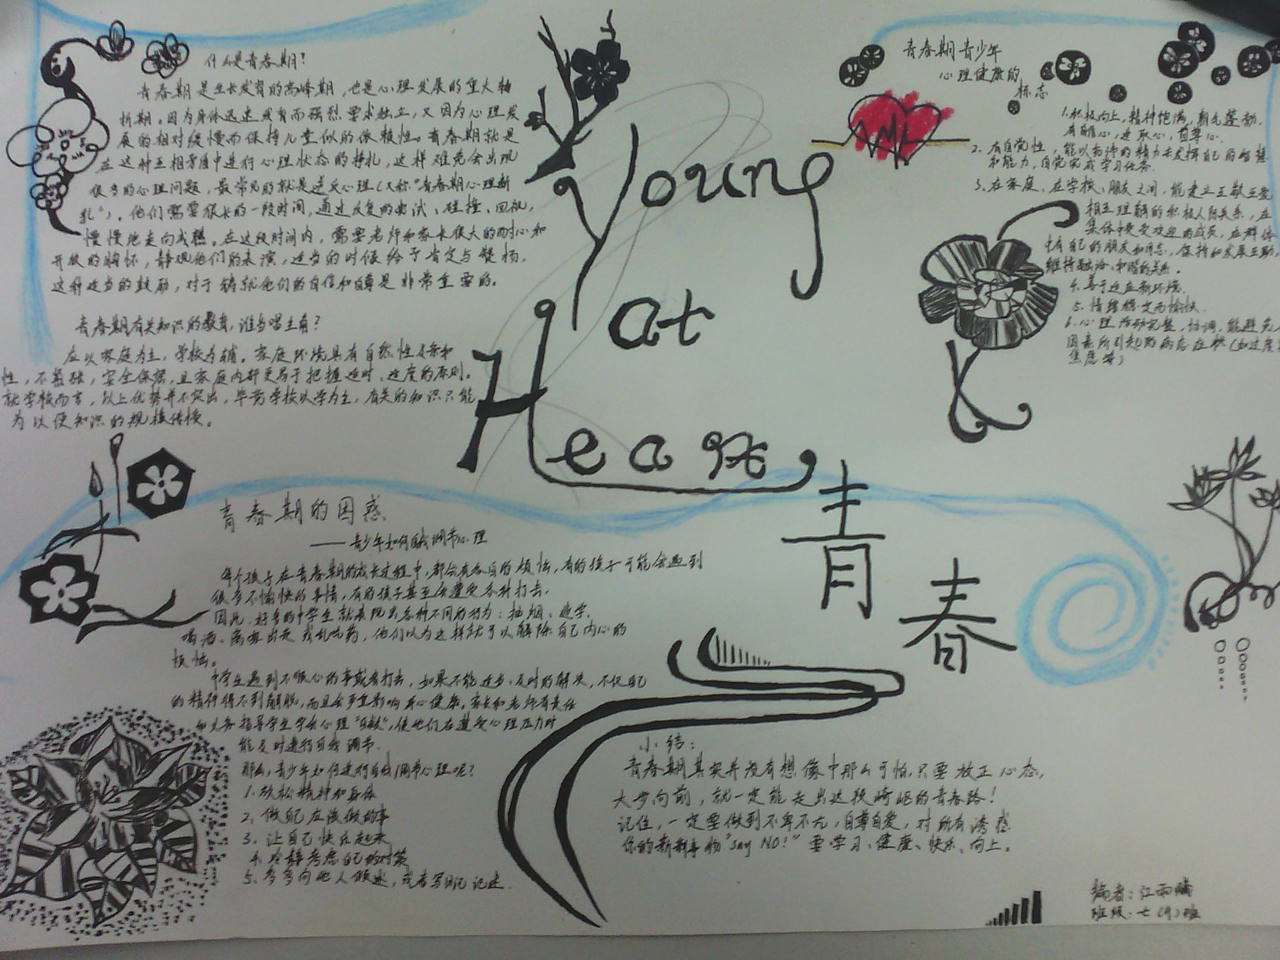 什么是青春期?
青春期是生长发育的高峰期,也是心理发展的重大转
折期。因为身体迅速发育而强烈要求独立,又因为心理发
展的相对缓慢而保持儿童似的依赖性。青春期就是
在这种互相矛盾中进行心理状态的挣扎,这样难免会出现
很多的心理问题,最常见的就是逆反心理(又称"青春期心理断
乳")。他们需要很长的一段时间,通过反复的尝试、碰撞、回视,
慢慢地走向成熟。在这段时间内,需要老师和家长很大的耐心和
开放的胸怀,静观他们的表演,适当的时候给于肯定与赞扬,
这种适当的鼓励,对于铸就他们的自信和自尊是非常重要的。
青春期有关知识的教育,谁当唱主角?
应以家庭为主,学校为辅。家庭环境具有自然性
性,不紧张,安全保密,且家庭内部更易于把握适时、适度的原则。
就学校而言,以上优势并不突出,毕竟学校以学为主,有关的知识只能
为以便知识的规模传授。
Young
at
Heart
青春
青春期青少年
心理健康的
标志
1.积极向上,精神饱满,朝气蓬勃,
有自信心,进取心,自尊心.
2.有自觉性,能以持的精力去发挥自己的智慧
和能力,自觉完成学习任务.
3.在家庭、在学校、朋友之间,能建立互敬互爱
相互理解的积极人际关系,在
集体中是受欢迎的成员,在群体
中有自己的朋友和同志,保持和发展互助,
维持融洽、和谐的关系。
4.善于适应新环境.
5.情绪稳定而愉快.
6.心理活动完整,协调,能避免
因素所引起的病态症状(如过度
焦虑等)
青春期的困惑
——青少年如何自我调节心理
每个孩子在青春期的成长过程中,都会有各自的烦恼,有的孩子可能会遇到
很多不愉快的事情,有的孩子甚至会遭受各种打击.
因此,好多的中学生就表现出各种不同的行为:抽烟、逃学、
喝酒、离家出走或乱吃药,他们以为这样就可以解除自己内心的
烦恼。
中学生遇到不顺心的事或者打击,如果不能进步及时的解决,不仅自己
的精神得不到解脱,而且会严重影响身心健康,家长和老师有责任
和义务指导学生学会心理"自救",使他们在遭受心理压力时
能及时进行自我调节.
那么,青少年如何进行自我调节心理呢?
1.放松精神和身体
2.做自己应该做的事
3.让自己快乐起来
4.冷静考虑自己的对策
5.多多向他人倾述,或者写日记记述.
小结:
青春期其实并没有想像中那么可怕,只要放正心态,
大步向前,就一定能走出这段崎岖的青春路!
记住,一定要做到不卑不亢,自尊自爱,对所有诱惑
你的新鲜事物"Say NO!"要学习、健康、快乐、向上。
编者:江雨
班级:七(9)班